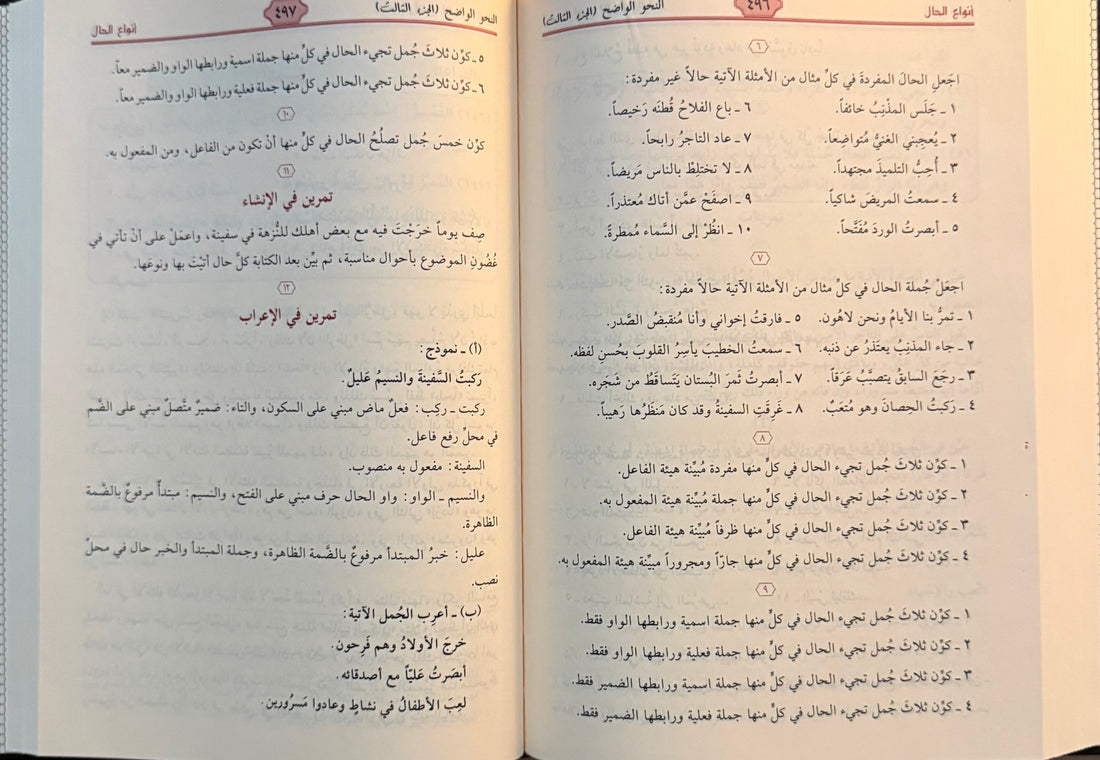 أنواع الحال
٤٩٦
النحو الواضح (الجزء الثالث)
٦
اجعلِ الحالَ المفردةَ في كلِّ مثال من الأمثلة الآتية حالاً غير مفردة:
١ ـ جَلَس المذْنِبُ خائفاً.
٦ ـ باع الفلاحُ قُطنَه رَخيصاً.
٢ ـ يُعجِبني الغنيُّ مُتواضِعاً.
٧ ـ عاد التاجرُ رابحاً.
٣ ـ أُحِبُّ التلميذَ مجتهداً.
٨ ـ لا تختلِطْ بالناس مَريضاً.
٤ ـ سمعتُ المريضَ شاكياً.
٩ ـ اصفَحْ عمَّن أتاك مُعتذراً.
٥ ـ أبصرتُ الوردَ مُفَتَّحاً.
١٠ ـ انظُرْ إلى السَّماء مُمطرةً.
٧
اجعَلْ جُملة الحال في كلِّ مثال من الأمثلة الآتية حالاً مفردة:
١ ـ تمرُّ بنا الأيامُ ونحن لاهُون.
٥ ـ فارقتُ إخواني وأنا مُنقبضُ الصَّدر.
٢ ـ جاء المذنِبُ يعتَذرُ عن ذنبه.
٦ ـ سمعتُ الخطيبَ يأسِرُ القلوبَ بحُسنِ لفظه.
٣ ـ رجَعَ السابقُ يتصبَّبُ عَرَقاً.
٧ ـ أبصرتُ ثمَرَ البُستان يَتَساقَطُ من شَجَره.
٤ ـ رَكبتُ الحِصانَ وهو مُتعَبٌ.
٨ ـ غَرِقتِ السفينةُ وقد كان مَنظَرُها رَهيباً.
٨
١ ـ كوِّن ثلاثَ جُمل تجيء الحال في كلٍّ منها مفردة مُبيِّنة هيئة الفاعل.
٢ ـ كوِّن ثلاثَ جُمل تجيء الحال في كلٍّ منها جملة مُبيِّنة هيئة المفعول به.
٣ ـ كوِّن ثلاثَ جُمل تجيء الحال في كلٍّ منها ظرفاً مُبيِّنة هيئة الفاعل.
٤ ـ كوِّن ثلاثَ جُمل تجيء الحال في كلٍّ منها جارّاً ومجروراً مبيِّنة هيئة المفعول به.
٩
١ ـ كوِّن ثلاثَ جُمل تجيء الحال في كلٍّ منها جملة اسمية ورابطها الواو فقط.
٢ ـ كوِّن ثلاثَ جُمل تجيء الحال في كلٍّ منها جملة فعلية ورابطها الواو فقط.
٣ ـ كوِّن ثلاثَ جُمل تجيء الحال في كلٍّ منها جملة اسمية ورابطها الضمير فقط.
٤ ـ كوِّن ثلاثَ جُمل تجيء الحال في كلٍّ منها جملة فعلية ورابطها الضمير فقط.
النحو الواضح (الجزء الثالث)
٤٩٧
أنواع الحال
٥ ـ كوِّن ثلاثَ جُمل تجيء الحال في كلٍّ منها جملة اسمية ورابطها الواو والضمير معاً.
٦ ـ كوِّن ثلاثَ جُمل تجيء الحال في كلٍّ منها جملة فعلية ورابطها الواو والضمير معاً.
١٠
كوِّن خمسَ جُمل تصلُحُ الحال في كلٍّ منها أنْ تكون من الفاعل، ومن المفعول به.
١١
تمرين في الإنشاء
صِف يوماً خرَجْتَ فيه مع بعض أهلك للنُّزهة في سفينة، واعمَلْ على أنْ تأتي في
غُضُونِ الموضوع بأحوال مناسبة، ثم بيِّن بعد الكتابة كلَّ حال أتيْتَ بها ونوعَها.
١٢
تمرين في الإعراب
(أ) ـ نموذج:
رَكبتُ السَّفينةَ والنسيمُ عَليلٌ.
ركبت ـ ركِب: فعلٌ ماض مبني على السكون، والتاء: ضميرٌ متَّصلٌ مبني على الضَّم
في محلِّ رفع فاعل.
السفينة: مفعول به منصوب.
والنسيم ـ الواو: واو الحال حرف مبني على الفتح، والنسيم: مبتدأ مرفوعٌ بالضَّمة
الظاهرة.
عليل: خبرُ المبتدأ مرفوعٌ بالضَّمة الظاهرة، وجملة المبتدأ والخبر حال في محلِّ
نصب.
(ب) ـ أعرِب الجُمل الآتية:
خرجَ الأولادُ وهم فَرِحون.
أبصَرتُ عَليّاً مع أصدقائه.
لعِبَ الأطفالُ في نشاطٍ وعادوا مَسرُورين.